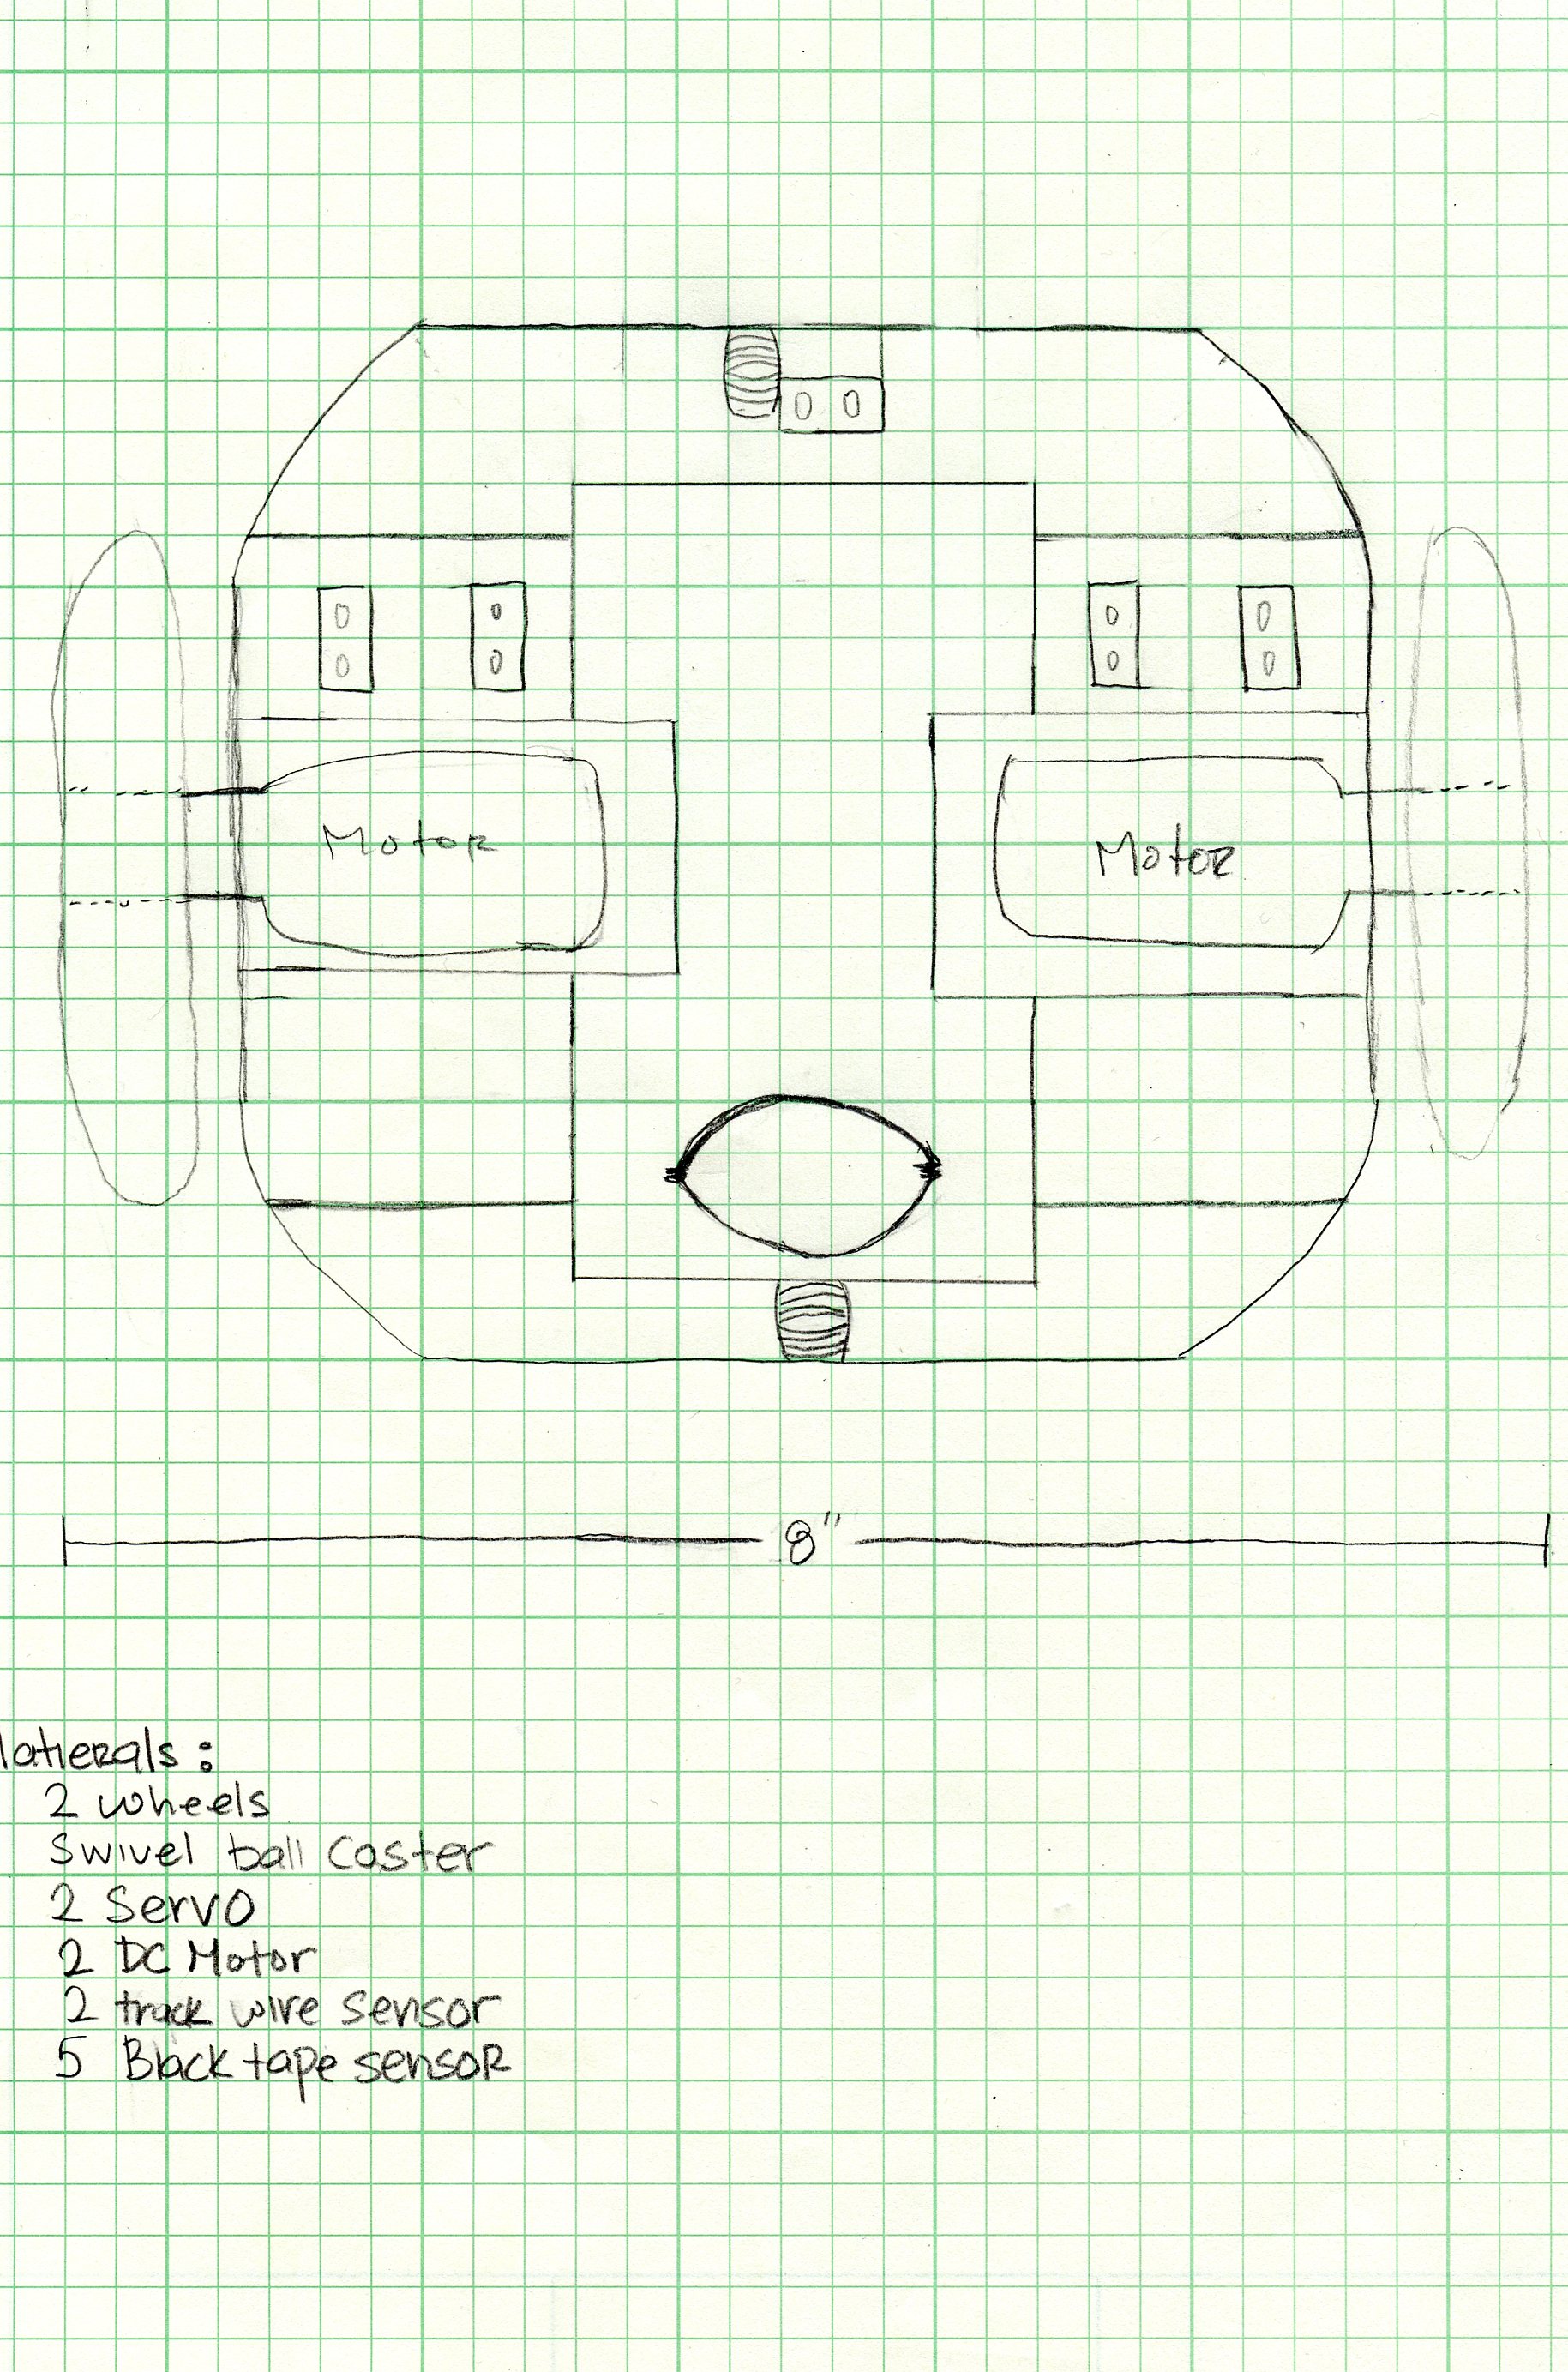 Motor
Motor
8"
Materials:
2 wheels
Swivel ball caster
2 Servo
2 DC Motor
2 track wire sensor
5 Black tape sensor